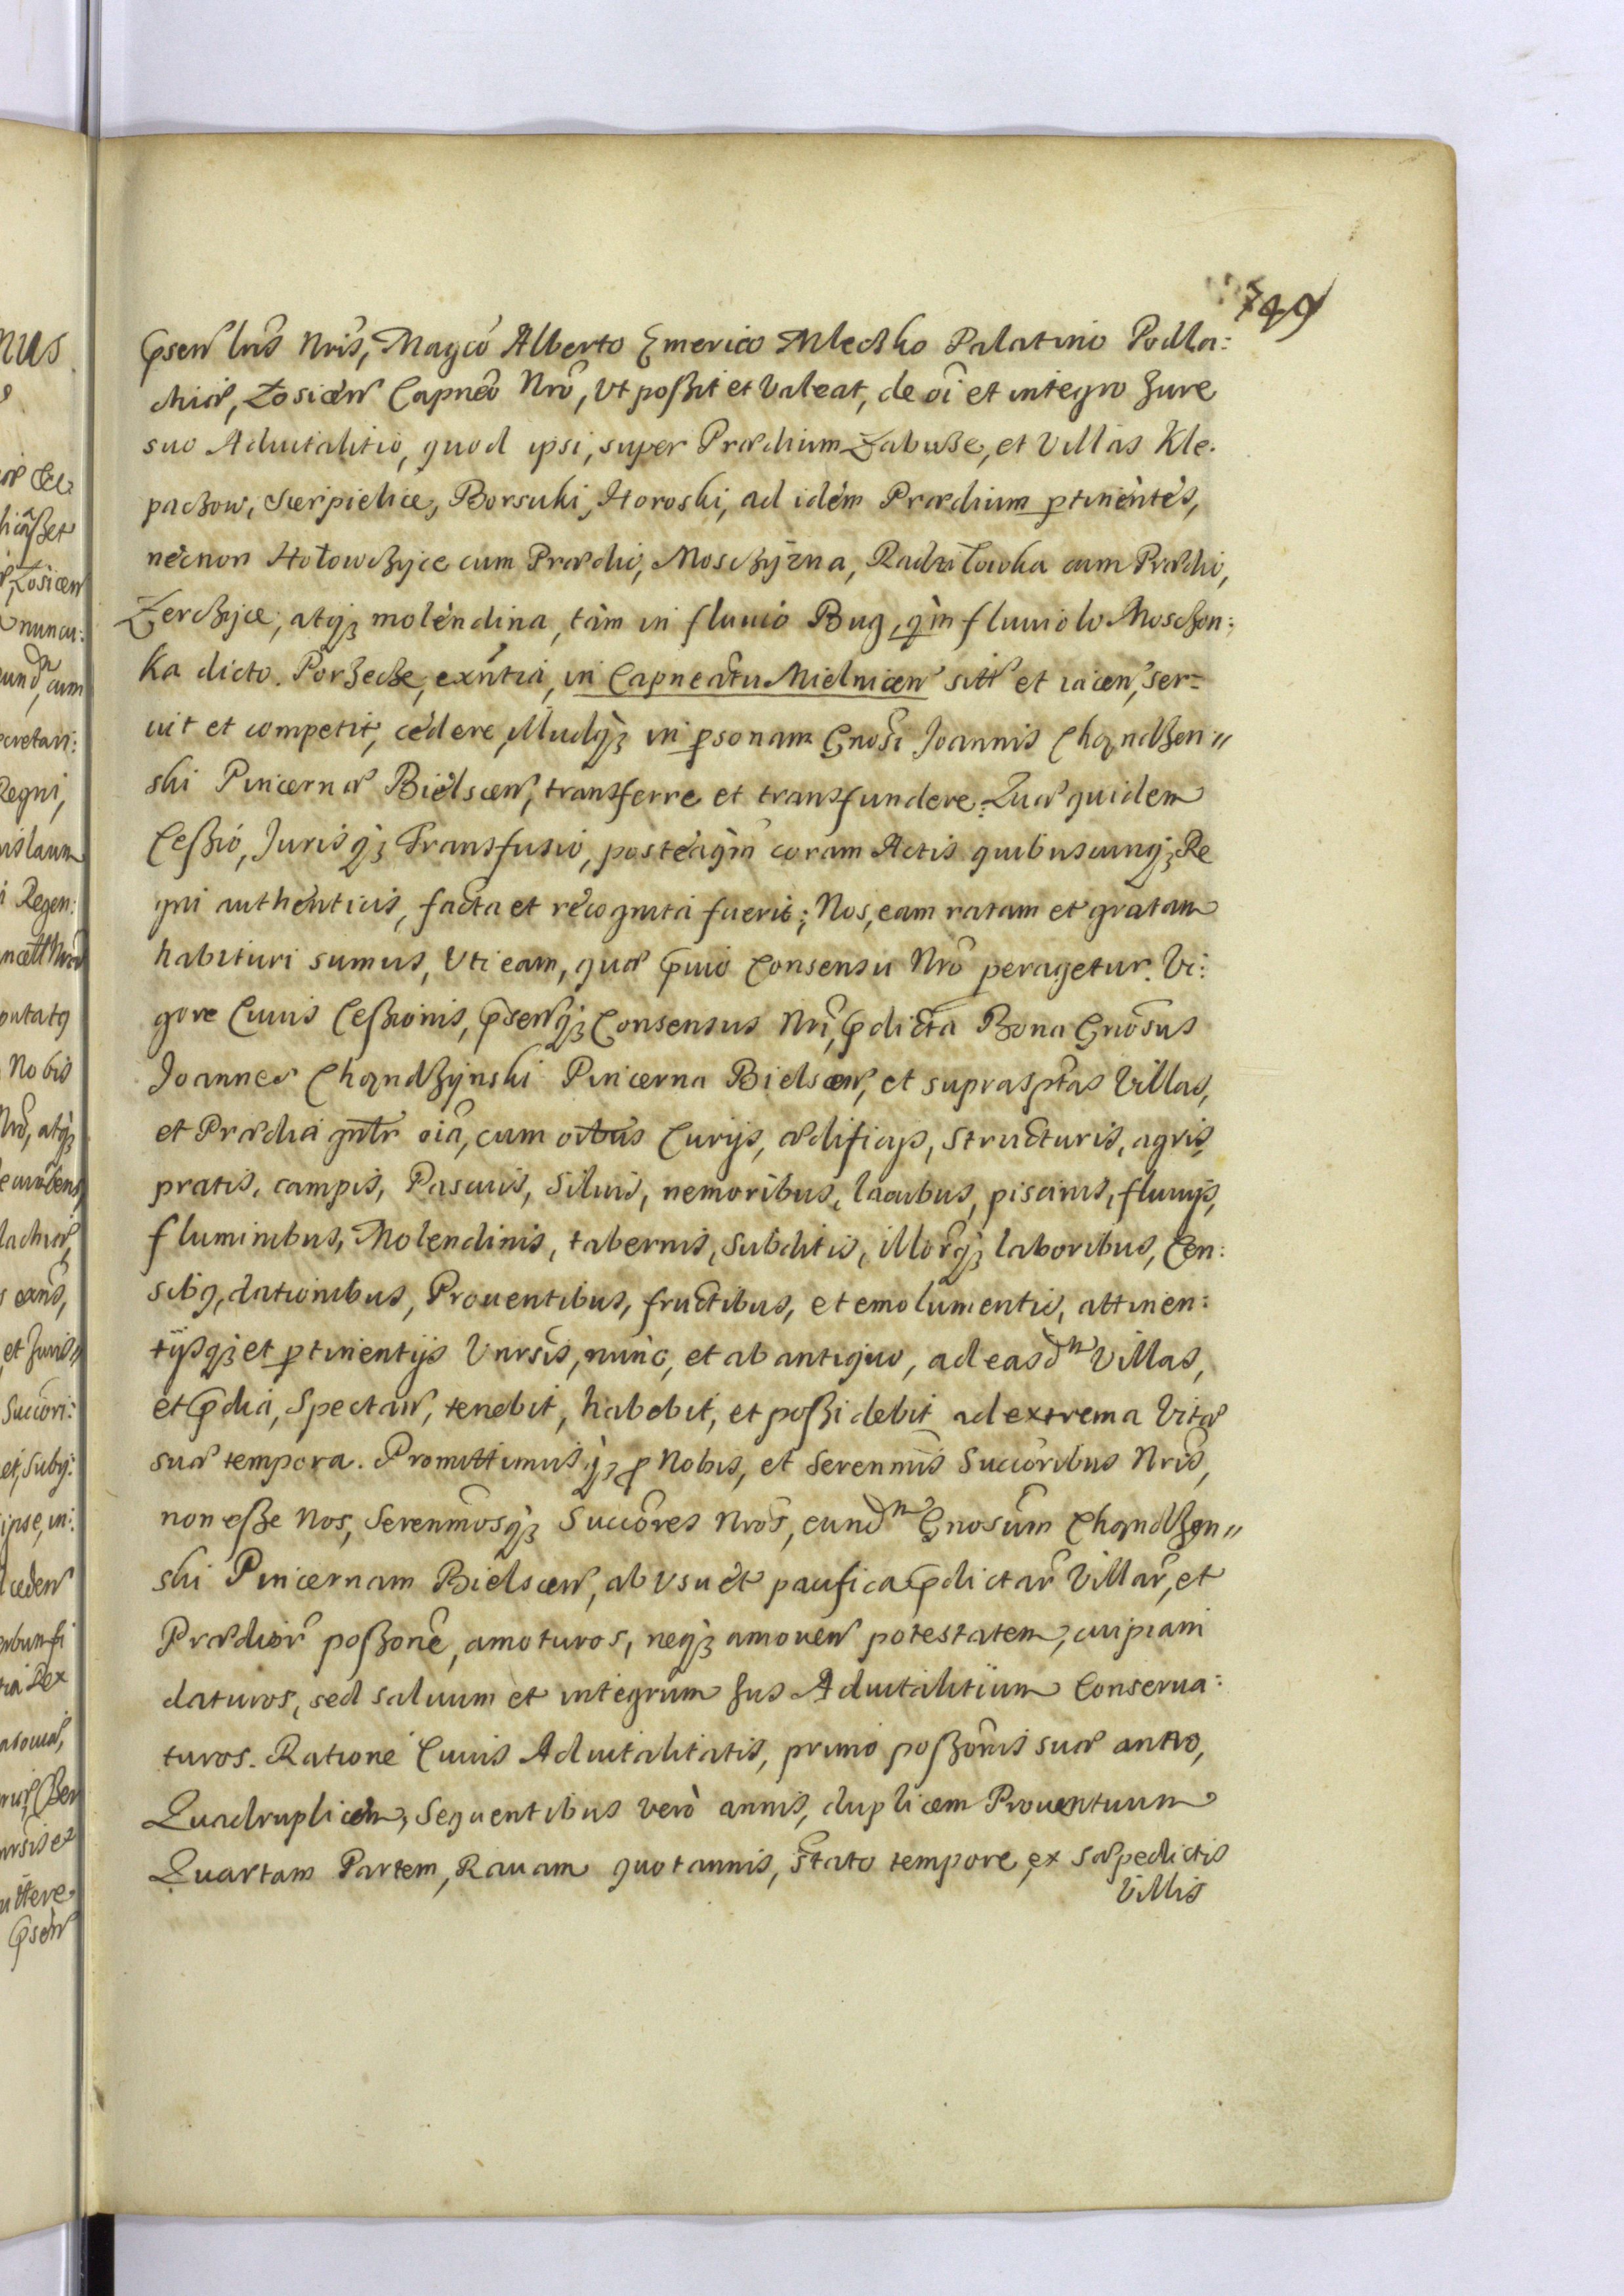 749
Pṅsen lrīs Nrīs, Magco Alberto Emerico Mleczko Palatino Podla:
chiæ, Łosicen Capneo Nrō, Vt possit et Valeat, de oī et integro Jure
suo Aduitalitio, quod ipsi, super Prædium Zabuże, et Villas Kle-
paczow, Serpielice, Borsuki, Horoski, ad idem Prædium ptinentes,
necnon Hołowczyce cum Prædio, Mosczyzna, Radziłowka cum Prædio,
Zerczyce, atq; molendina, tam in fluuio Bug, qm̄ fluuiolo Moszczon:
ka dicto. Porzecze, exn̄tia, in Capneatu Mielnicen sitt et iacen, ser-
uit et competit, cedere, illudq; in psonam Gnosi Joannis Chądzyn//
ski Pincernæ Bielscen, transferre et transfundere. Quæ quidem
Cessio, Jurisq; Transfusio, posteaqm̄ coram Actis quibuscunq; Re
gni authenticis, facta et recognita fuerit; Nos, eam ratam et gratam
habituri sumus, Vti eam, quæ pṙuio Consensu Nrō peragetur. Vi:
gore Cuius Cessionis, pṅsenq; Consensus Nrī, pdicta Bona Gnosus
Joannes Chądzynski Pincerna Bielscen, et suprasptas Villas,
et Prædia gntr oīa, cum oībus Curijs, ædificijs, structuris, agris,
pratis, campis, Pascuis, Siluis, nemoribus, lacubus, piscinis, fluuijs,
fluminibus, Molendinis, tabernis, Subditis, illorq; laboribus, Cen:
sibq, dationibus, Prouentibus, fructibus, et emolumentis, attinen:
tijsq; et ptinentijs Vnrsis, nunc, et ab antiquo, ad easdm Villas,
et pdia, Spectan, tenebit, habebit, et possidebit ad extrema Vitæ
suæ tempora. Promittimusq; p Nobis, et Serenmis Succoribus Nrīs,
non esse Nos, Serenmosq; Succores Nros, eundm Gnosum Chądzyn//
ski Pincernam Bielscen, ab Vsu et pacifica pdictar Villar, et
Prædior posson̄e, amoturos, neq; amouen potestatem, cuipiam
daturos, sed saluum et integrum Jus Aduitalitium Conserua:
turos. Ratione Cuius Aduitalitatis, primo possōnis suæ anno,
Quadruplicem, Sequentibus Verò annis, duplicem Prouentuum
Quartam Partem, Rauam quotannis, stato tempore, ex sæpedictis
Villis